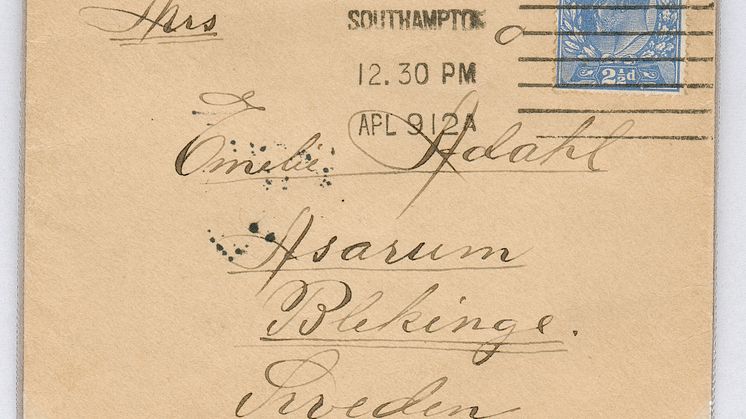 Mrs
SOUTHAMPTON
12.30 PM
APL 9 12A
2½d
Emelie Adahl
Asarum
Blekinge.
Sweden